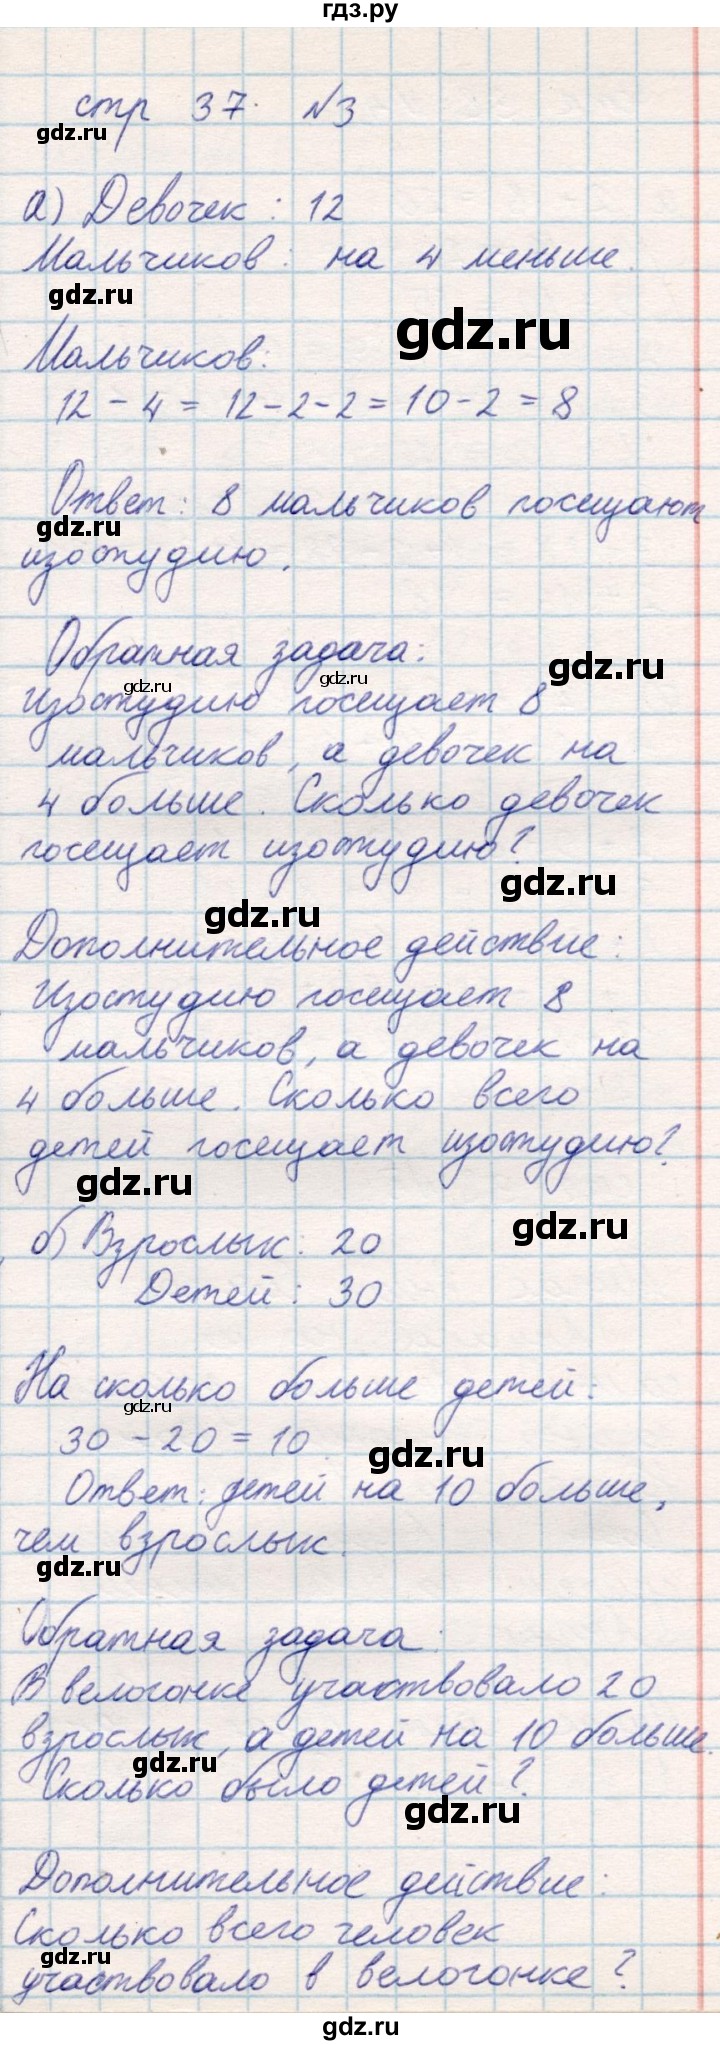 гдз.ру
стр 37. №3
gdz.ru
а) Девочек: 12
Мальчиков: на 4 меньше.
gdz.ru
gdz.ru
Мальчиков:
12 - 4 = 12-2-2 = 10-2 = 8
Ответ: 8 мальчиков посещают
gdz.ru
изостудию.
Обратная задача:
gdz.ru
gdz.ru
gdz.ru
Изостудию посещает 8
мальчиков, а девочек на
4 больше. Сколько девочек
посещает изостудию?
gdz.ru
gdz.ru
Дополнительное действие:
Изостудию посещает 8
мальчиков, а девочек на
4 больше. Сколько всего
детей посещает изостудию?
gdz.ru
gdz.ru
б) Взрослых: 20
Детей: 30
На сколько больше детей:
gdz.ru
30 - 20 = 10
gdz.ru
Ответ: детей на 10 больше,
чем взрослых.
gdz.ru
Обратная задача:
В велогонке участвовало 20
взрослых, а детей на 10 больше.
gdz.ru
Сколько было детей?
gdz.ru
Дополнительное действие:
Сколько всего человек
gdz.ru
участвовало в велогонке?
gdz.ru
gdz.ru